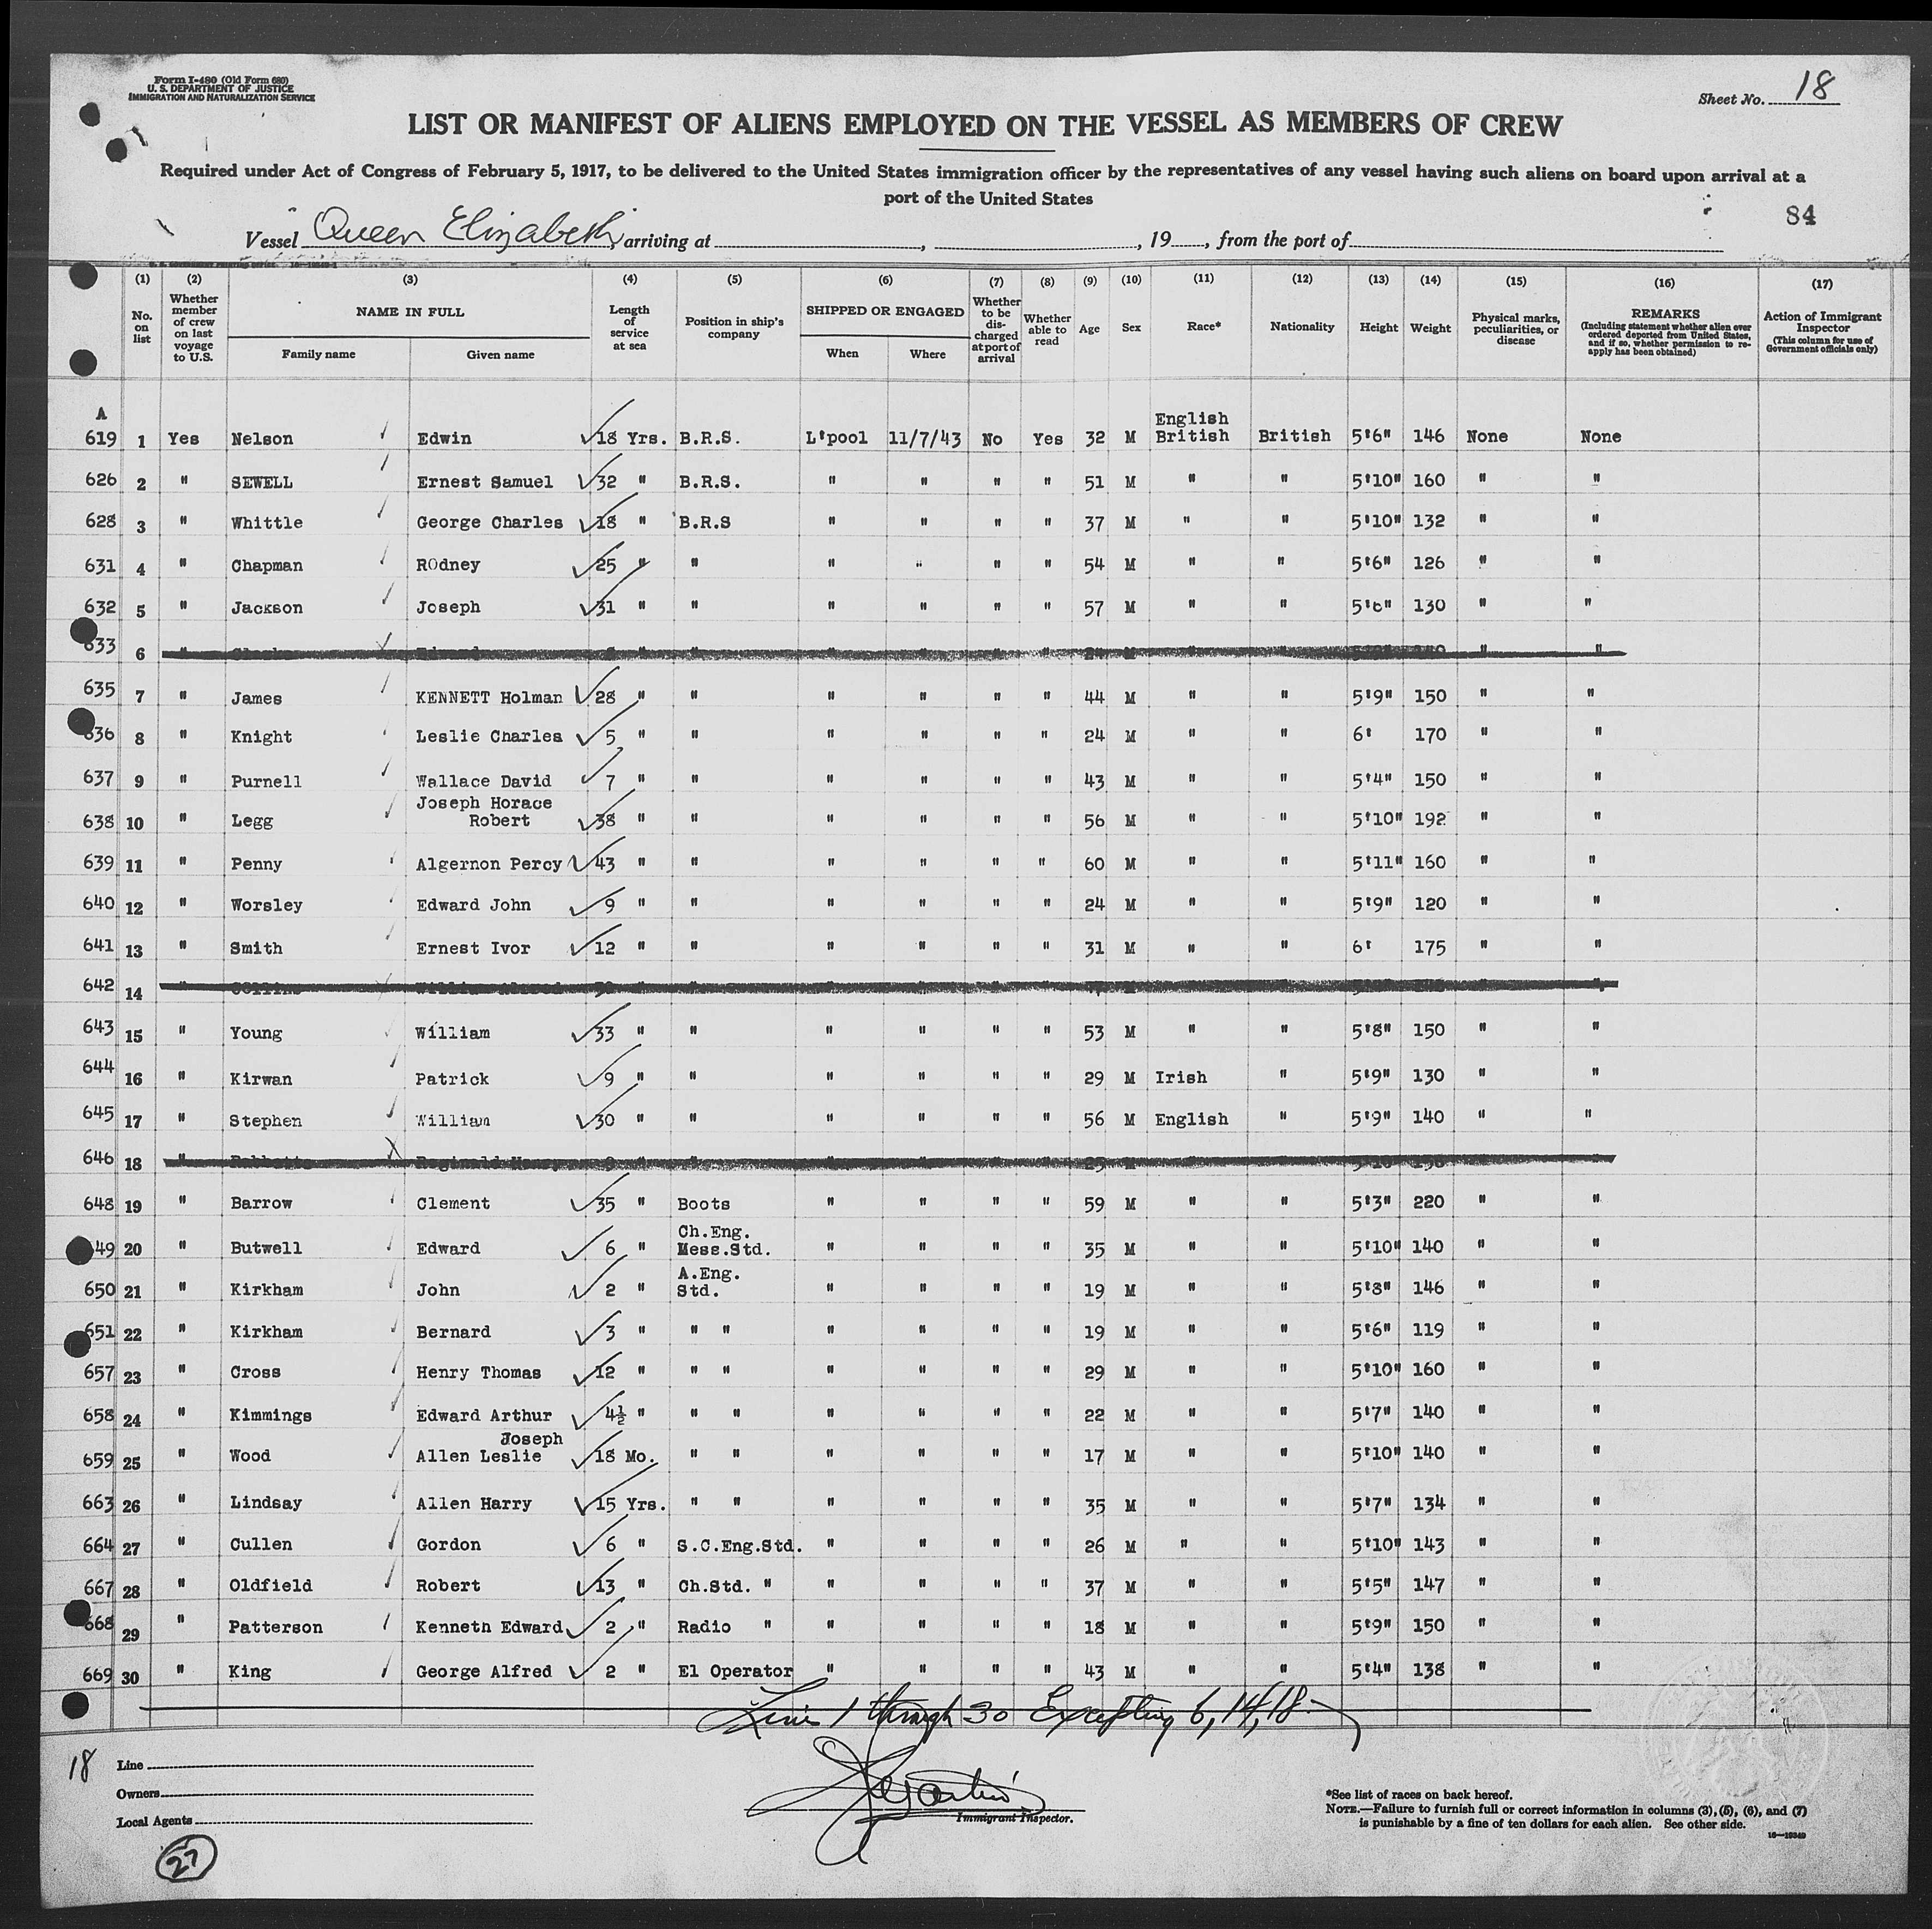 Form I-480 (Old Form 680)
U. S. DEPARTMENT OF JUSTICE
IMMIGRATION AND NATURALIZATION SERVICE
Sheet No. 18
LIST OR MANIFEST OF ALIENS EMPLOYED ON THE VESSEL AS MEMBERS OF CREW
Required under Act of Congress of February 5, 1917, to be delivered to the United States immigration officer by the representatives of any vessel having such aliens on board upon arrival at a
port of the United States
84
Vessel Queen Elizabeth, arriving at , , 19 , from the port of
(1) (2) (3) (4) (5) (6) (7) (8) (9) (10) (11) (12) (13) (14) (15) (16) (17)
No. on list | Whether member of crew on last voyage to U.S. | NAME IN FULL Family name Given name | Length of service at sea | Position in ship's company | SHIPPED OR ENGAGED When Where | Whether to be discharged at port of arrival | Whether able to read | Age | Sex | Race* | Nationality | Height | Weight | Physical marks, peculiarities, or disease | REMARKS (Including statement whether alien ever ordered deported from United States, and if so, whether permission to reapply has been obtained) | Action of Immigrant Inspector (This column for use of Government officials only)
A
619 1 Yes Nelson Edwin 18 Yrs. B.R.S. L'pool 11/7/43 No Yes 32 M English British British 5'6" 146 None None
626 2 " SEWELL Ernest Samuel 32 " B.R.S. " " " " 51 M " " 5'10" 160 " "
628 3 " Whittle George Charles 18 " B.R.S " " " " 37 M " " 5'10" 132 " "
631 4 " Chapman ROdney 25 " " " " " " 54 M " " 5'6" 126 " "
632 5 " Jackson Joseph 31 " " " " " " 57 M " " 5'6" 130 " "
633 6 " " " " " " " " " " "
635 7 " James KENNETT Holman 28 " " " " " " 44 M " " 5'9" 150 " "
636 8 " Knight Leslie Charles 5 " " " " " " 24 M " " 6' 170 " "
637 9 " Purnell Wallace David 7 " " " " " " 43 M " " 5'4" 150 " "
638 10 " Legg Joseph Horace Robert 38 " " " " " " 56 M " " 5'10" 192 " "
639 11 " Penny Algernon Percy 43 " " " " " " 60 M " " 5'11" 160 " "
640 12 " Worsley Edward John 9 " " " " " " 24 M " " 5'9" 120 " "
641 13 " Smith Ernest Ivor 12 " " " " " " 31 M " " 6' 175 " "
642 14
643 15 " Young William 33 " " " " " " 53 M " " 5'8" 150 " "
644 16 " Kirwan Patrick 9 " " " " " " 29 M Irish " 5'9" 130 " "
645 17 " Stephen William 30 " " " " " " 56 M English " 5'9" 140 " "
646 18
648 19 " Barrow Clement 35 " Boots " " " " 59 M " " 5'3" 220 " "
649 20 " Butwell Edward 6 " Ch.Eng. Mess.Std. " " " " 35 M " " 5'10" 140 " "
650 21 " Kirkham John 2 " A.Eng. Std. " " " " 19 M " " 5'8" 146 " "
651 22 " Kirkham Bernard 3 " " " " " " " 19 M " " 5'6" 119 " "
657 23 " Cross Henry Thomas 12 " " " " " " " 29 M " " 5'10" 160 " "
658 24 " Kimmings Edward Arthur 4½ " " " " " " " 22 M " " 5'7" 140 " "
659 25 " Wood Joseph Allen Leslie 18 Mo. " " " " " " 17 M " " 5'10" 140 " "
663 26 " Lindsay Allen Harry 15 Yrs. " " " " " " 35 M " " 5'7" 134 " "
664 27 " Cullen Gordon 6 " S.C.Eng.Std. " " " " 26 M " " 5'10" 143 " "
667 28 " Oldfield Robert 13 " Ch.Std. " " " " " 37 M " " 5'5" 147 " "
668 29 " Patterson Kenneth Edward 2 " Radio " " " " " 18 M " " 5'9" 150 " "
669 30 " King George Alfred 2 " El Operator " " " " 43 M " " 5'4" 138 " "
Lines 1 through 30 Excepting 6, 14, 18
18
Line
Owners
Local Agents
Immigrant Inspector.
*See list of races on back hereof.
NOTE.—Failure to furnish full or correct information in columns (3), (5), (6), and (7)
is punishable by a fine of ten dollars for each alien. See other side.
27